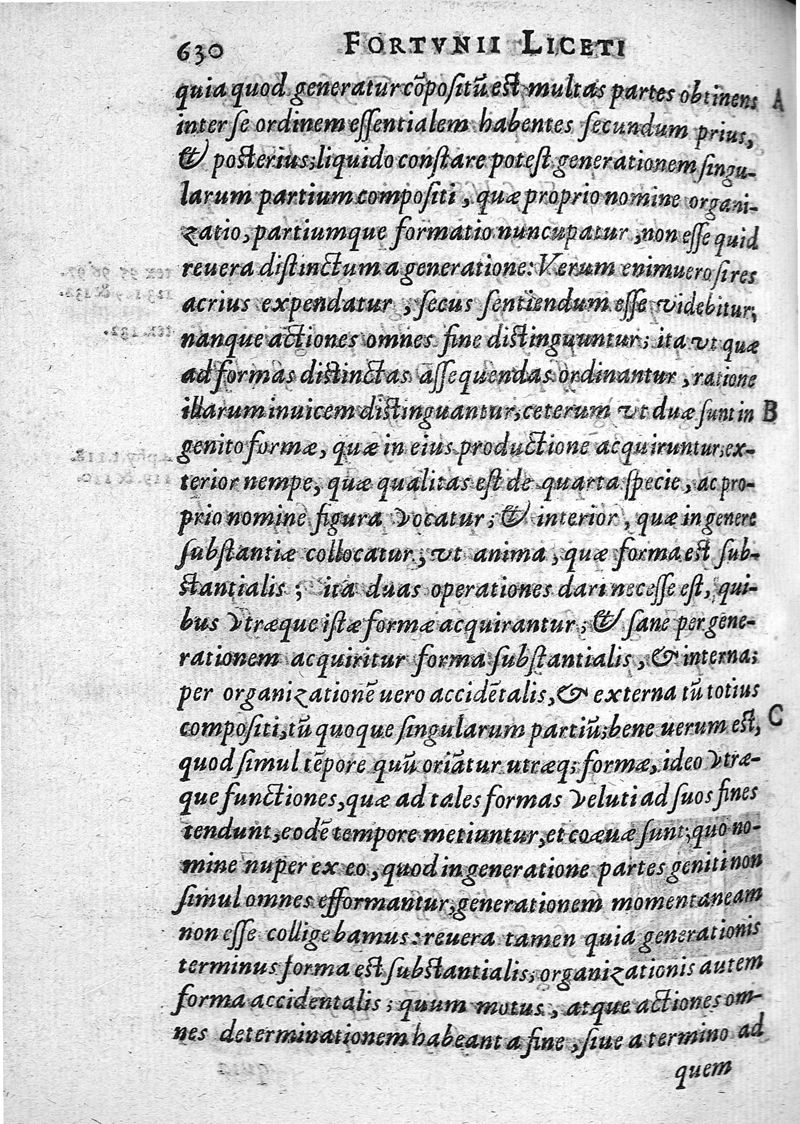 630 FORTVNII LICETI
quia quod generatur cōpositū est multas partes obtinens A
inter se ordinem essentialem habentes secundum prius,
& posterius; liquido constare potest generationem singu-
larum partium compositi, quæ proprio nomine organi-
zatio, partiumque formatio nuncupatur, non esse quid
reuera distinctum a generatione: Verum enimuero si res
acrius expendatur, secus sentiendum esse videbitur;
nanque actiones omnes fine distinguuntur; ita vt quæ
ad formas distinctas assequendas ordinantur, ratione
illarum inuicem distinguantur, ceterum vt duæ sunt in B
genito formæ, quæ in eius productione acquiruntur, ex-
terior nempe, quæ qualitas est de quarta specie, ac pro-
prio nomine figura vocatur; & interior, quæ in genere
substantiæ collocatur, vt anima, quæ forma est sub-
stantialis; ita duas operationes dari necesse est, qui-
bus vtræque istæ formæ acquirantur; & sane per gene-
rationem acquiritur forma substantialis, & interna;
per organizationē uero accidētalis, & externa tū totius
compositi, tū quoque singularum partiū; bene uerum est, C
quod simul tēpore quū oriātur utræq; formæ, ideo vtræ-
que functiones, quæ ad tales formas veluti ad suos fines
tendunt, eodē tempore metiuntur, et coæuæ sunt; quo no-
mine nuper ex eo, quod in generatione partes geniti non
simul omnes efformantur, generationem momentaneam
non esse colligebamus: reuera tamen quia generationis
terminus forma est substantialis, organizationis autem
forma accidentalis; quum motus, atque actiones om-
nes determinationem habeant a fine, siue a termino ad
quem